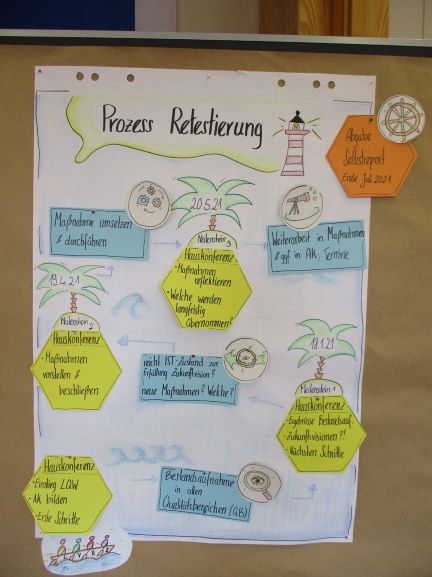 Prozess Retestierung
Abgabe
Selbstreport
Ende Juli 2021
Maßnahme umsetzen
& durchführen
20.5.21
Meilenstein 3
Hauskonferenz
• Maßnahmen
reflektieren
• Welche werden
langfristig
übernommen?
Weiterarbeit in Maßnahmen
& ggf. in AK, Termine
19.4.21
Meilenstein 2
Hauskonferenz
• Maßnahmen
vorstellen &
beschließen
reicht IST-Zustand zur
Erfüllung Zukunftvision?
neue Maßnahmen? Welche?
18.1.21
Meilenstein 1
Hauskonferenz
- Ergebnisse Bestandsauf.
- Zukunftsvisionen?!
• Nächsten Schritte
Hauskonferenz
• Einstieg LQW
• AK bilden
• Erste Schritte
Bestandsaufnahme
in allen
Qualitätsbereichen (QB)